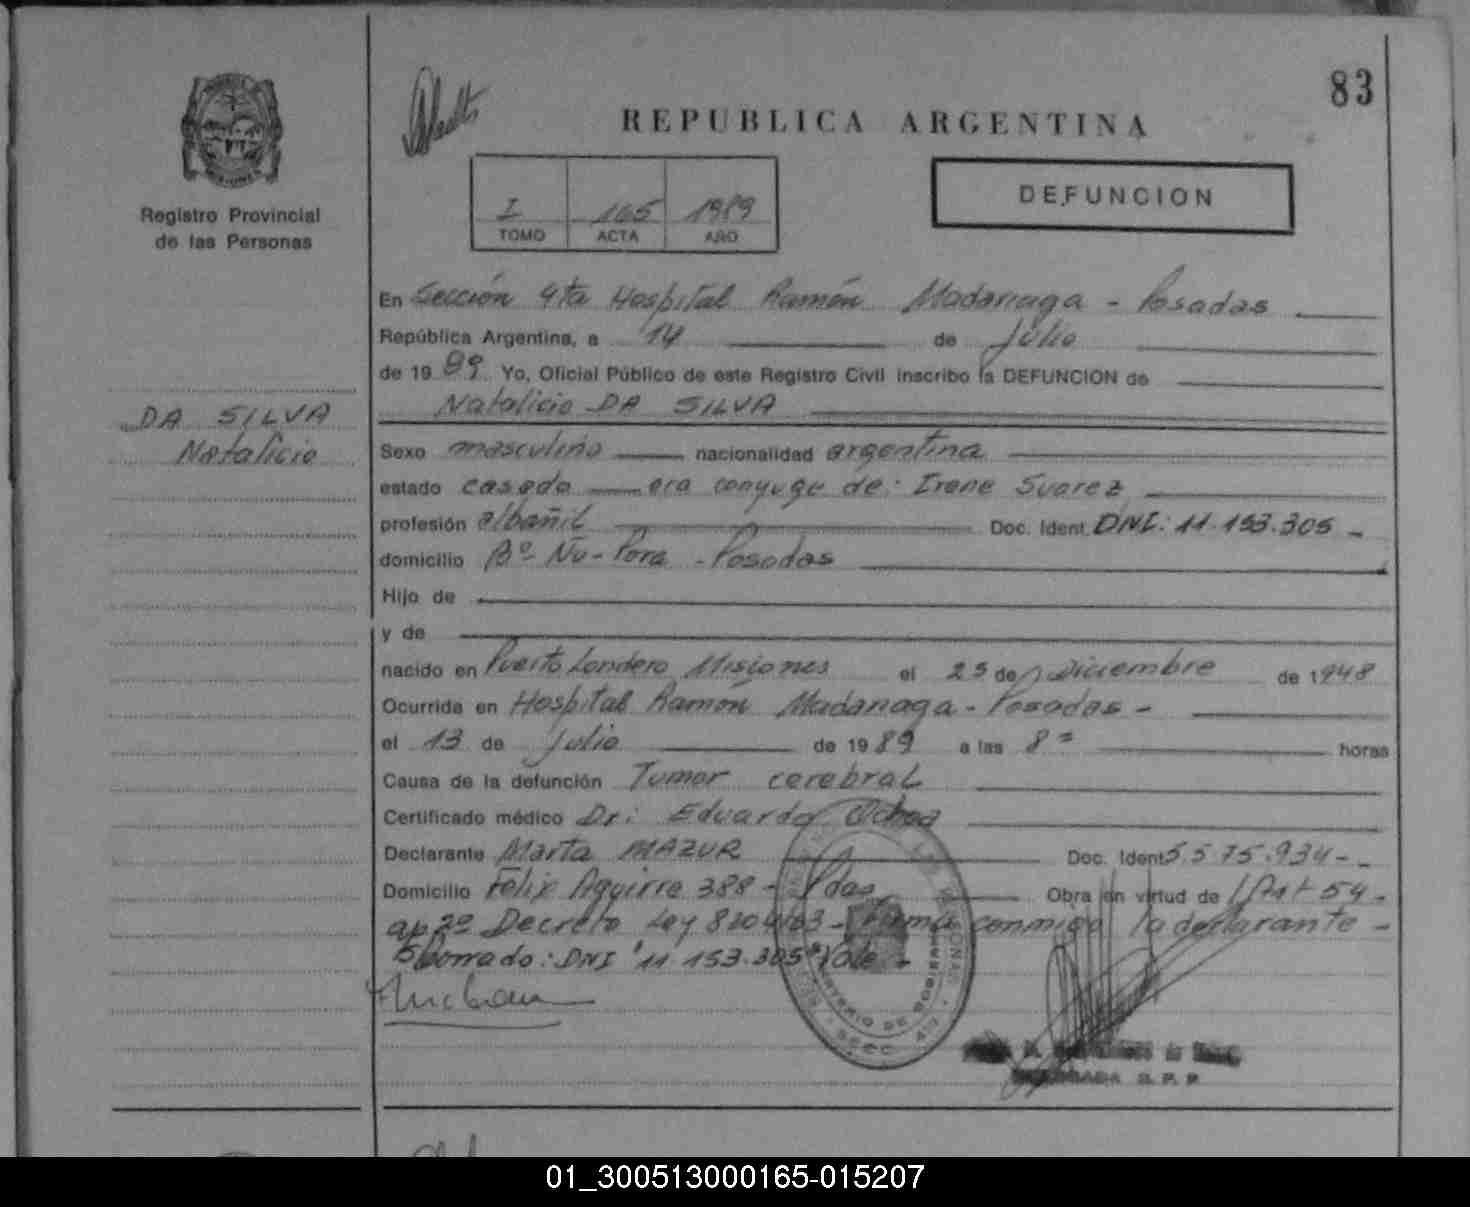 83
REPUBLICA ARGENTINA
DEFUNCION
Registro Provincial
de las Personas
I 165 1989
TOMO ACTA AÑO
En Sección 4ta Hospital Ramón Madariaga - Posadas
República Argentina, a 14 de Julio
de 1989 Yo, Oficial Público de este Registro Civil inscribo la DEFUNCION de
Natalicio DA SILVA
DA SILVA
Natalicio
Sexo masculino nacionalidad argentina
estado casado era conyuge de: Irene Suarez
profesión albañil Doc. Ident. DNI: 11.153.305 -
domicilio Bº Ñu-Pora - Posadas
Hijo de
y de
nacido en Puerto Londero Misiones el 25 de Diciembre de 1948
Ocurrida en Hospital Ramón Madariaga - Posadas -
el 13 de Julio de 1989 a las 8 horas
Causa de la defunción Tumor cerebral
Certificado médico Dr: Eduardo Ochoa
Declarante Marta MAZUR Doc. Ident 5.575.934 -
Domicilio Félix Aguirre 388 - Pdas Obra en virtud de Art 54 -
ap 2º Decreto Ley 8204/63 - Firma conmigo la declarante -
S/borrado: DNI "11.153.305" Vale -
MINISTERIO DE GOBIERNO
SECC. 4ta
01_300513000165-015207